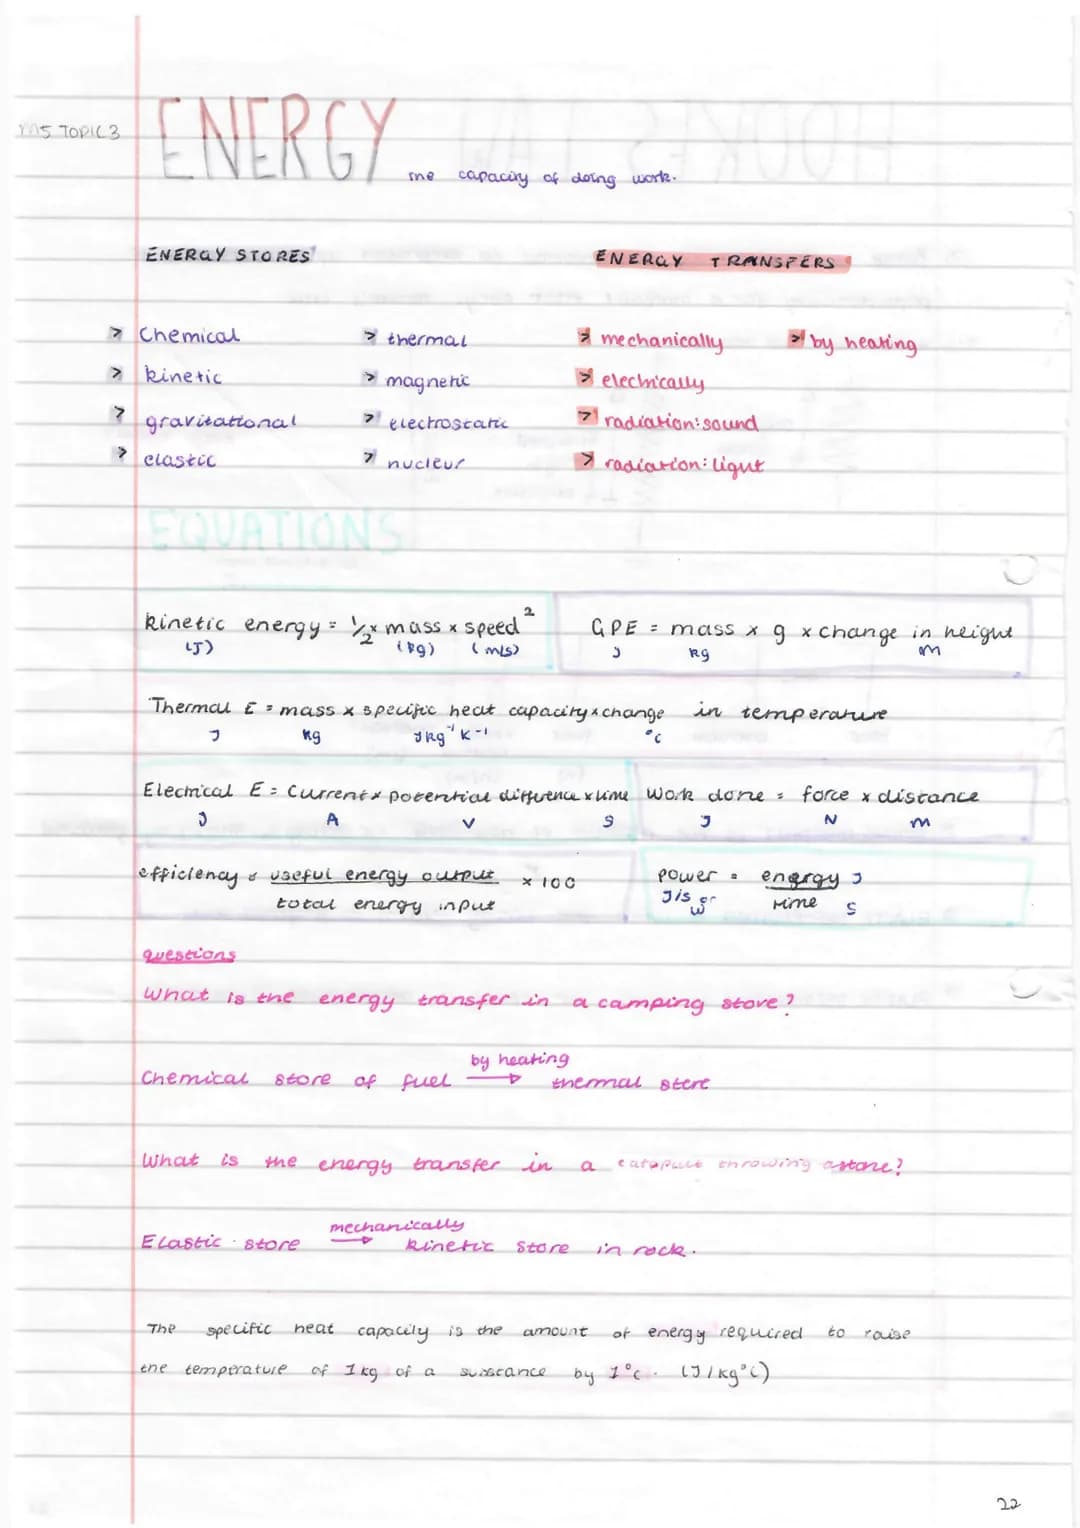 M5 TOPIC 3
ENERGY the capacity of doing work.
ENERGY STORES
ENERGY TRANSFERS
> Chemical
> kinetic
> gravitational
> elastic
> thermal
> magnetic
> electrostatic
> nuclear
> mechanically
> electrically
> radiation: sound
> radiation: light
> by heating
EQUATIONS
kinetic energy = 1/2 x mass x speed²
(J) (kg) (m/s)
GPE = mass x g x change in height
J kg m
Thermal E = mass x specific heat capacity x change in temperature
J kg J kg⁻¹ K⁻¹ °C
Electrical E = Current x potential difference x time
J A V s
Work done = force x distance
J N m
efficiency = useful energy output x 100
total energy input
power = energy J
J/s or W time s
questions
What is the energy transfer in a camping stove?
by heating
Chemical store of fuel → thermal store
What is the energy transfer in a catapult throwing a stone?
mechanically
Elastic store → kinetic store in rock.
The specific heat capacity is the amount of energy required to raise
the temperature of 1kg of a substance by 1°c. (J/kg°C)
22